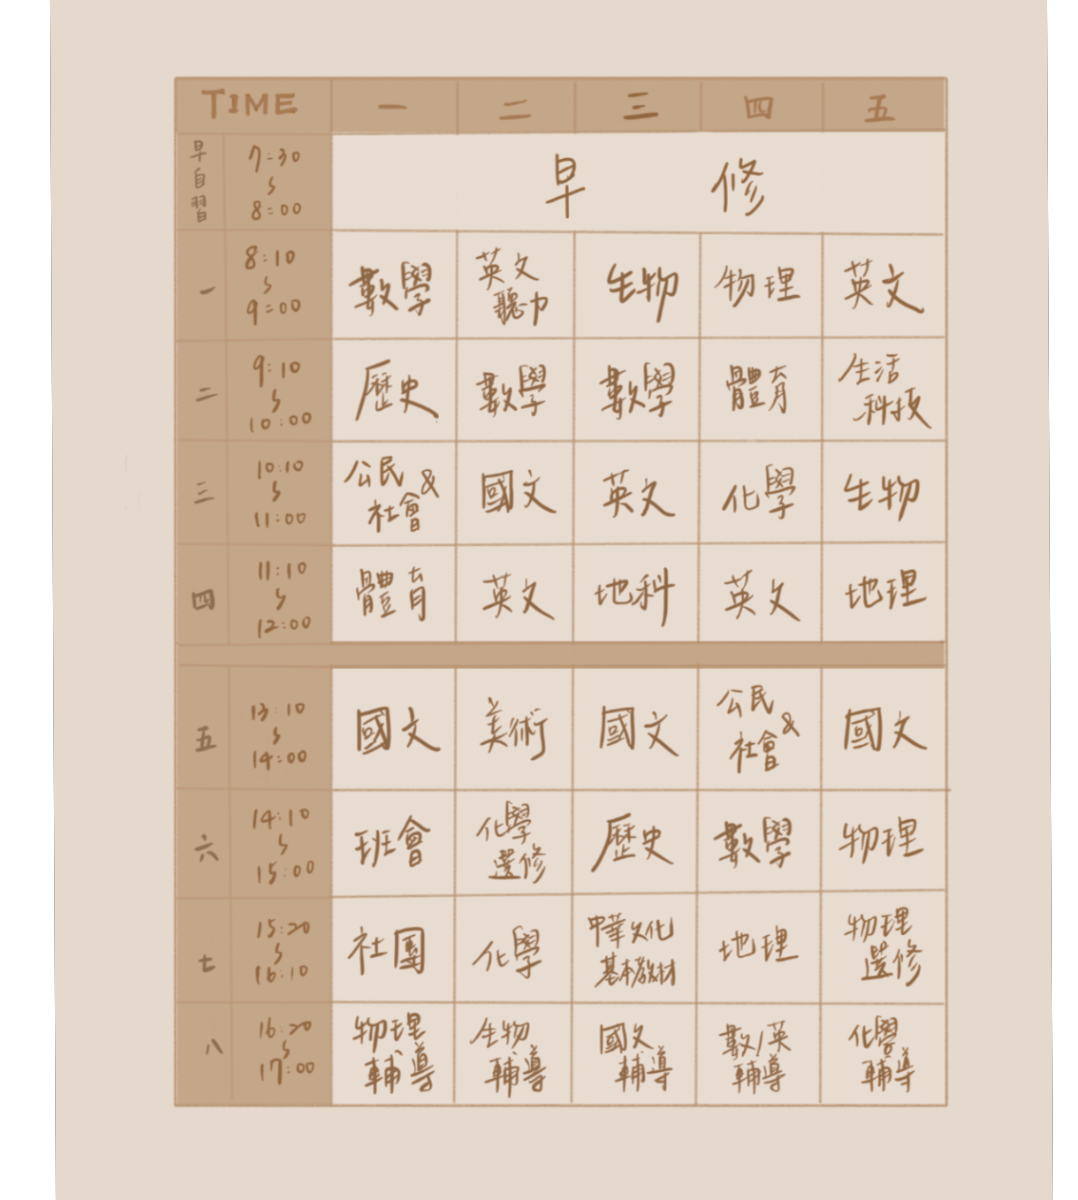 TIME 一 二 三 四 五
早自習 7:30 ~ 8:00 早 修
一 8:10 ~ 9:00 數學 英文聽力 生物 物理 英文
二 9:10 ~ 10:00 歷史 數學 數學 體育 生活科技
三 10:10 ~ 11:00 公民&社會 國文 英文 化學 生物
四 11:10 ~ 12:00 體育 英文 地科 英文 地理
五 13:10 ~ 14:00 國文 美術 國文 公民&社會 國文
六 14:10 ~ 15:00 班會 化學選修 歷史 數學 物理
七 15:20 ~ 16:10 社團 化學 中華文化基本教材 地理 物理選修
八 16:20 ~ 17:00 物理輔導 生物輔導 國文輔導 數/英輔導 化學輔導